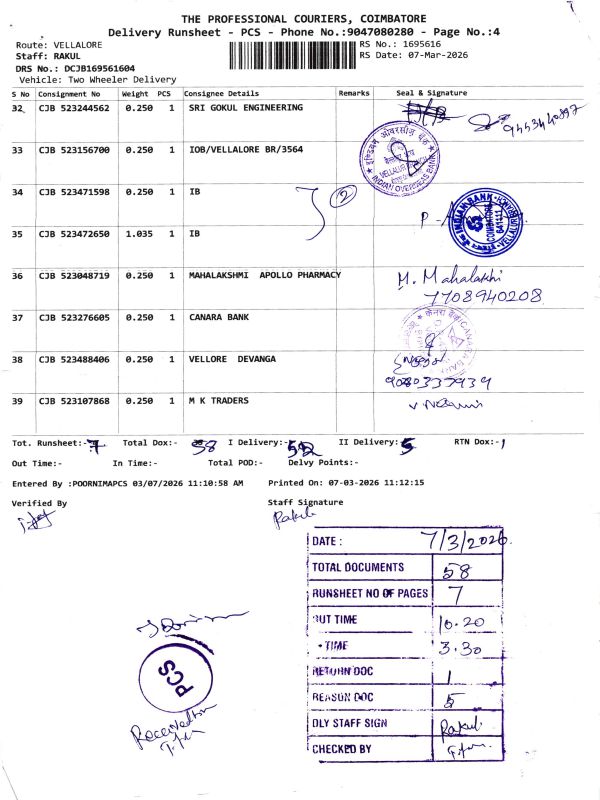 THE PROFESSIONAL COURIERS, COIMBATORE
Delivery Runsheet - PCS - Phone No.:9047080280 - Page No.:4
Route: VELLALORE
RS No.: 1695616
Staff: RAKUL
RS Date: 07-Mar-2026
DRS No.: DCJB169561604
Vehicle: Two Wheeler Delivery
S No Consignment No Weight PCS Consignee Details Remarks Seal & Signature
32 CJB 523244562 0.250 1 SRI GOKUL ENGINEERING 9453440897
33 CJB 523156700 0.250 1 IOB/VELLALORE BR/3564
इण्डियन ओवरसीज़ बैंक
INDIAN OVERSEAS BANK
34 CJB 523471598 0.250 1 IB
2
INDIAN BANK
COIMBATORE
641111
VELLALORE
35 CJB 523472650 1.035 1 IB
36 CJB 523048719 0.250 1 MAHALAKSHMI APOLLO PHARMACY M. Mahalakhi
7708940208
37 CJB 523276605 0.250 1 CANARA BANK
केनरा बैंक
CANARA BANK
38 CJB 523488406 0.250 1 VELLORE DEVANGA
9080337939
39 CJB 523107868 0.250 1 M K TRADERS
Tot. Runsheet:- 7 Total Dox:- 58 I Delivery:- 52 II Delivery: 5 RTN Dox:- 1
Out Time:- In Time:- Total POD:- Delvy Points:-
Entered By :POORNIMAPCS 03/07/2026 11:10:58 AM Printed On: 07-03-2026 11:12:15
Verified By
Staff Signature
Rakul
DATE : 7/3/2026
TOTAL DOCUMENTS 58
RUNSHEET NO OF PAGES 7
OUT TIME 10.20
TIME 3.30
RETURN DOC 1
REASON DOC 5
DLY STAFF SIGN Rakul
CHECKED BY
PCS
Received